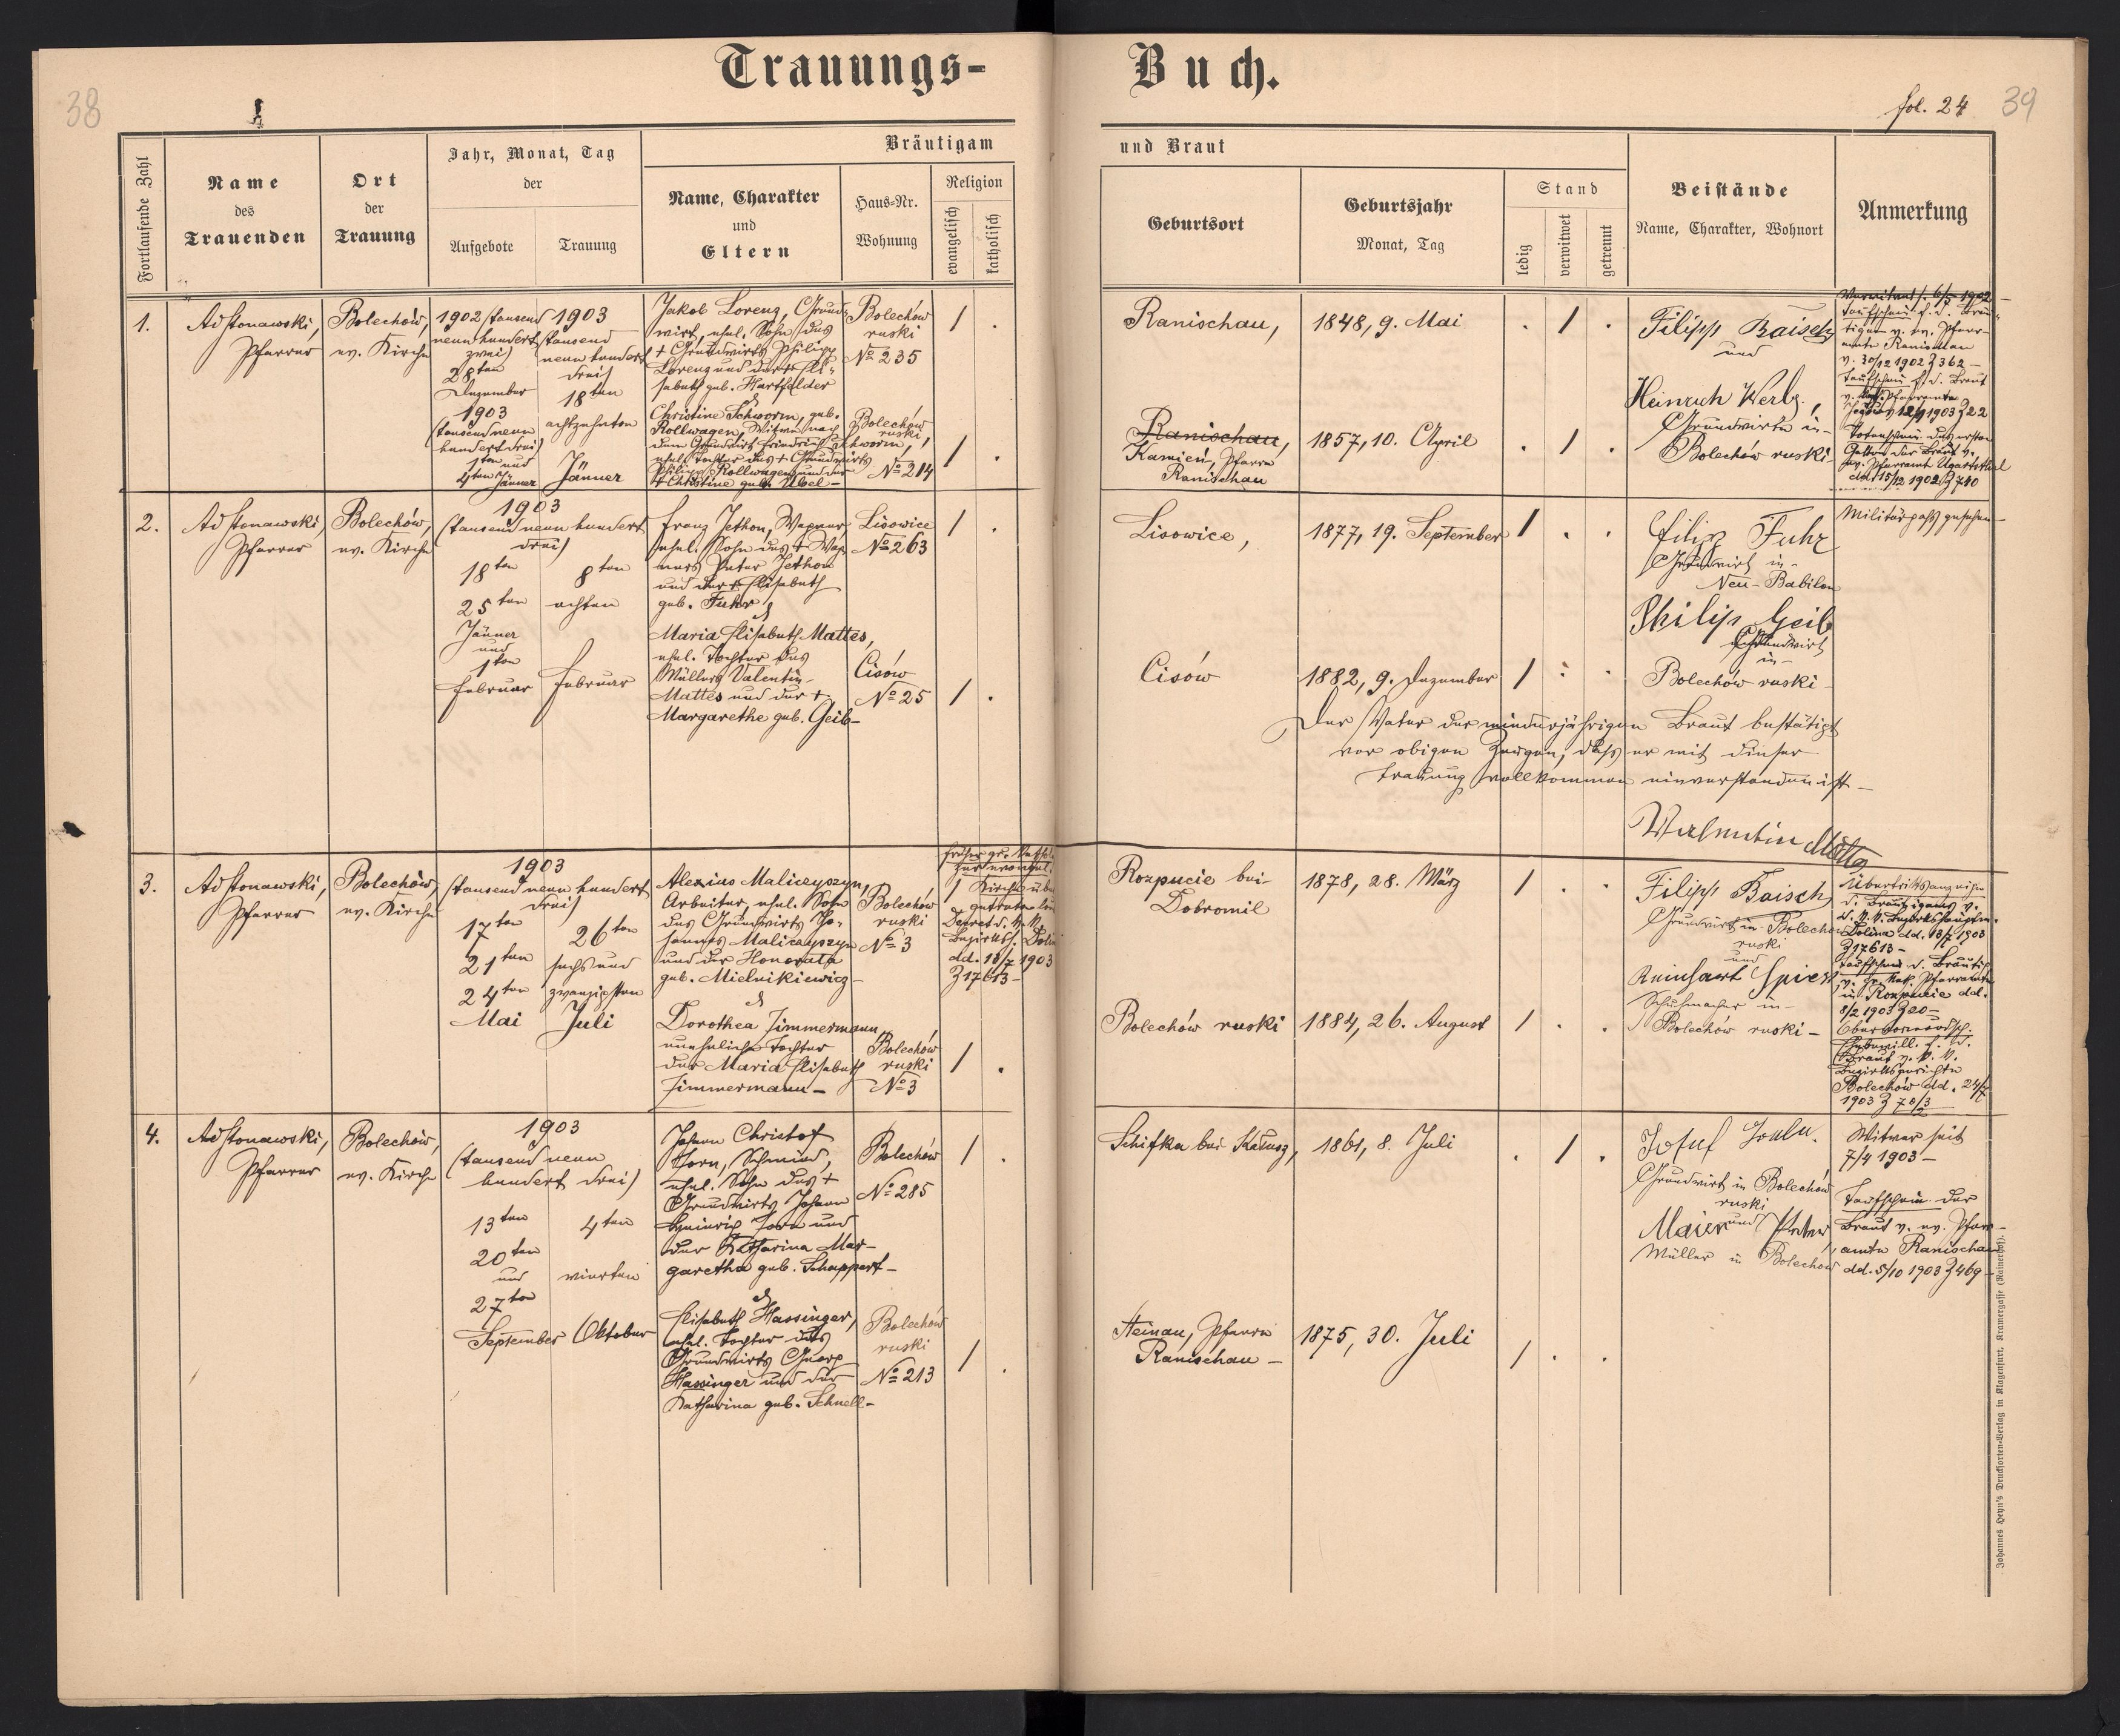 Trauungs-
Buch.
38
fol. 24 39
Fortlaufende Zahl
Name
des
Trauenden
Ort
der
Trauung
Jahr, Monat, Tag
der
Aufgebote
Trauung
Bräutigam
Name, Charakter
und
Eltern
Haus-Nr.
Wohnung
Religion
evangelisch
katholisch
und Braut
Geburtsort
Geburtsjahr
Monat, Tag
Stand
ledig
verwitwet
getrennt
Beistände
Name, Charakter, Wohnort
Anmerkung
1.
Ad Stonawski,
Pfarrer
Bolechów,
ev. Kirche
1902 (tausend
neunhundert
zwei)
28ten
Dezember
1903
(tausend neun
hundert drei)
1ten und
4ten Jänner
1903
(tausend
neun hundert
drei)
18ten
achtzehnten
Jänner
Jakob Lorenz, Grund-
wirt, ehel. Sohn des
+ Grundwirts Philipp
Lorenz und der + Eli-
sabeth geb. Hartfelder
&
Christine Schworm, geb.
Rollwagen, Witwe nach
dem Grundwirt Friedrich Schworm,
ehel. Tochter des + Grundwirts
Philipp Rollwagen und der
+ Christine geb. Übel –
Bolechów
ruski
№ 235
Bolechów
ruski
№ 214
/ .
/ .
Ranischau,
Ranischau,
Kamień, Pfarre
Ranischau
1848, 9. Mai
1857, 10. April
. / .
. / .
Filipp Baisch
und
Heinrich Werlz,
Grundwirte in
Bolechów ruski
6/7 1902
Taufschein f. d. Bräu-
tigam v. ev. Pfarr-
amte Ranischau
v. 30/12 1902 Z 362 –
Taufschein f. d. Braut
12/1 1903 Z 22
Totenschein des ersten
Gatten der Braut v.
ev. Pfarramt Ugartsthal
dd 15/12 1902 Z 740
2.
Ad Stonawski,
Pfarrer
Bolechów,
ev. Kirche
1903
(tausend neun hundert
drei)
18ten
25ten
Jänner
und
1ten
Februar
8ten
achten
Februar
Franz Jethon, Wagner,
ehel. Sohn des + Wag-
ners Peter Jethon
und der + Elisabeth
geb. Fuhr
&
Maria Elisabeth Mattes,
ehel. Tochter des
Müllers Valentin
Mattes und der +
Margarethe geb. Geib –
Lisowice
№ 263
Cisów
№ 25
/ .
/ .
Lisowice,
Cisów
1877, 19. September
1882, 9. Dezember
/ . .
/ . .
Filip Fuhr
Grundwirt in
Neu-Babilon
Philip Geib
Grundwirt
in
Bolechów ruski
Militärpaß gesehen –
Der Vater der minderjährigen Braut bestätigt
vor obigen Zeugen, daß er mit dieser
Trauung vollkommen einverstanden ist –
Valentin Mattes
3.
Ad Stonawski,
Pfarrer
Bolechów,
ev. Kirche
1903
(tausend neun hundert
drei)
17ten
21ten
24ten
Mai
26ten
sechs und
zwanzigsten
Juli
Alexius Maliczyszyn,
Arbeiter, ehel. Sohn
des Grundwirts Jo-
hannes Maliczyszyn
und der Honorata
geb. Mielnikiewicz –
&
Dorothea Zimmermann,
uneheliche Tochter
der Maria Elisabeth
Zimmermann –
Bolechów
ruski
№ 3
Bolechów
ruski
№ 3
früher gr. kathol.
zur evangel.
/ Kirche über
getreten laut
Decret d. k. k.
Bezirksh. Dolina
dd. 18/7 1903
Z 17613 –
/ .
Rozpucie bei
Dobromil
Bolechów ruski
1878, 28. März
1884, 26. August
/ . .
/ . .
Filipp Baisch,
Grundwirt in Bolechów
ruski
und
Reinhart Spiess
Schuhmacher in
Bolechów ruski –
Übertrittsanzeige
d. Bräutigams v.
d. k. k. Bezirkshauptm.
Dolina dd. 18/7 1903
Z 17613 –
Taufschein d. Bräutig.
v. gr. kat. Pfarramte
in Rozpucie dd.
8/2 1903 Z 20 –
Obervormundsch.
Ehebewill. f. d.
Braut v. k. k.
Bezirksgerichte
Bolechów dd. 24/7
1903
4.
Ad Stonawski,
Pfarrer
Bolechów,
ev. Kirche
1903
(tausend neun
hundert drei)
13ten
20ten
und
27ten
September
4ten
vierten
Oktober
Johann Christof
Horn, Schmied,
ehel. Sohn des +
Grundwirts Johann
Heinrich Horn und
der Katharina Mar-
garetha geb. Schappert –
&
Elisabeth Hassinger,
ehel. Tochter des
Grundwirts Georg
Hassinger und der
Katharina geb. Schnell –
Bolechów
№ 285
Bolechów
ruski
№ 213
/ .
/ .
Schifka bei Kałusz,
Steinau, Pfarre
Ranischau –
1861, 8. Juli
1875, 30. Juli
. / .
/ . .
Josef
Grundwirt in Bolechów
ruski
und
Maier Peter
Müller in Bolechów
Witwer seit
7/4 1903 –
Taufschein der
Braut v. ev. Pfarr-
amte Ranischau
dd. 5/10 1903 Z 469 –
Johannes Heyn's Drucksorten-Verlag in Klagenfurt, Kramergasse (Rainerhof).